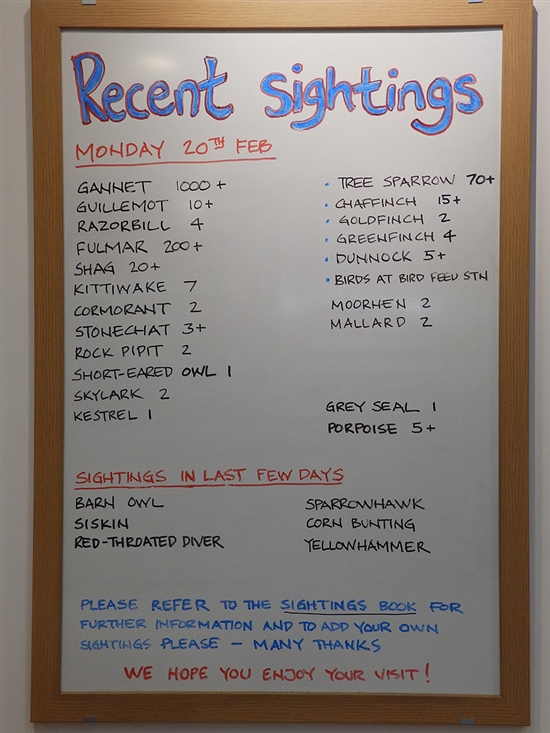 Recent Sightings
MONDAY 20TH FEB
GANNET 1000+
GUILLEMOT 10+
RAZORBILL 4
FULMAR 200+
SHAG 20+
KITTIWAKE 7
CORMORANT 2
STONECHAT 3+
ROCK PIPIT 2
SHORT-EARED OWL 1
SKYLARK 2
KESTREL 1
• TREE SPARROW 70+
• CHAFFINCH 15+
• GOLDFINCH 2
• GREENFINCH 4
• DUNNOCK 5+
• BIRDS AT BIRD FEED STN
MOORHEN 2
MALLARD 2
GREY SEAL 1
PORPOISE 5+
SIGHTINGS IN LAST FEW DAYS
BARN OWL
SISKIN
RED-THROATED DIVER
SPARROWHAWK
CORN BUNTING
YELLOWHAMMER
PLEASE REFER TO THE SIGHTINGS BOOK FOR
FURTHER INFORMATION AND TO ADD YOUR OWN
SIGHTINGS PLEASE – MANY THANKS
WE HOPE YOU ENJOY YOUR VISIT!